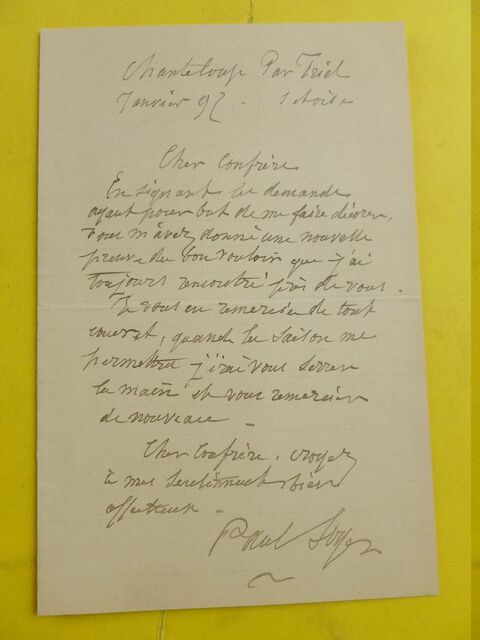 Chanteloup Par Triel
Janvier 92 -
Cher Confrère
En signant la demande
ayant pour but de me faire décorer,
vous m'avez donné une nouvelle
preuve du bon vouloir que j'ai
toujours rencontré près de vous.
Je vous en remercie de tout
cœur et, quand la saison me
permettra j'irai vous serrer
la main et vous remercier
de nouveau -
Cher Confrère, croyez
à mes sentiments bien
affectueux -
Paul Soyer